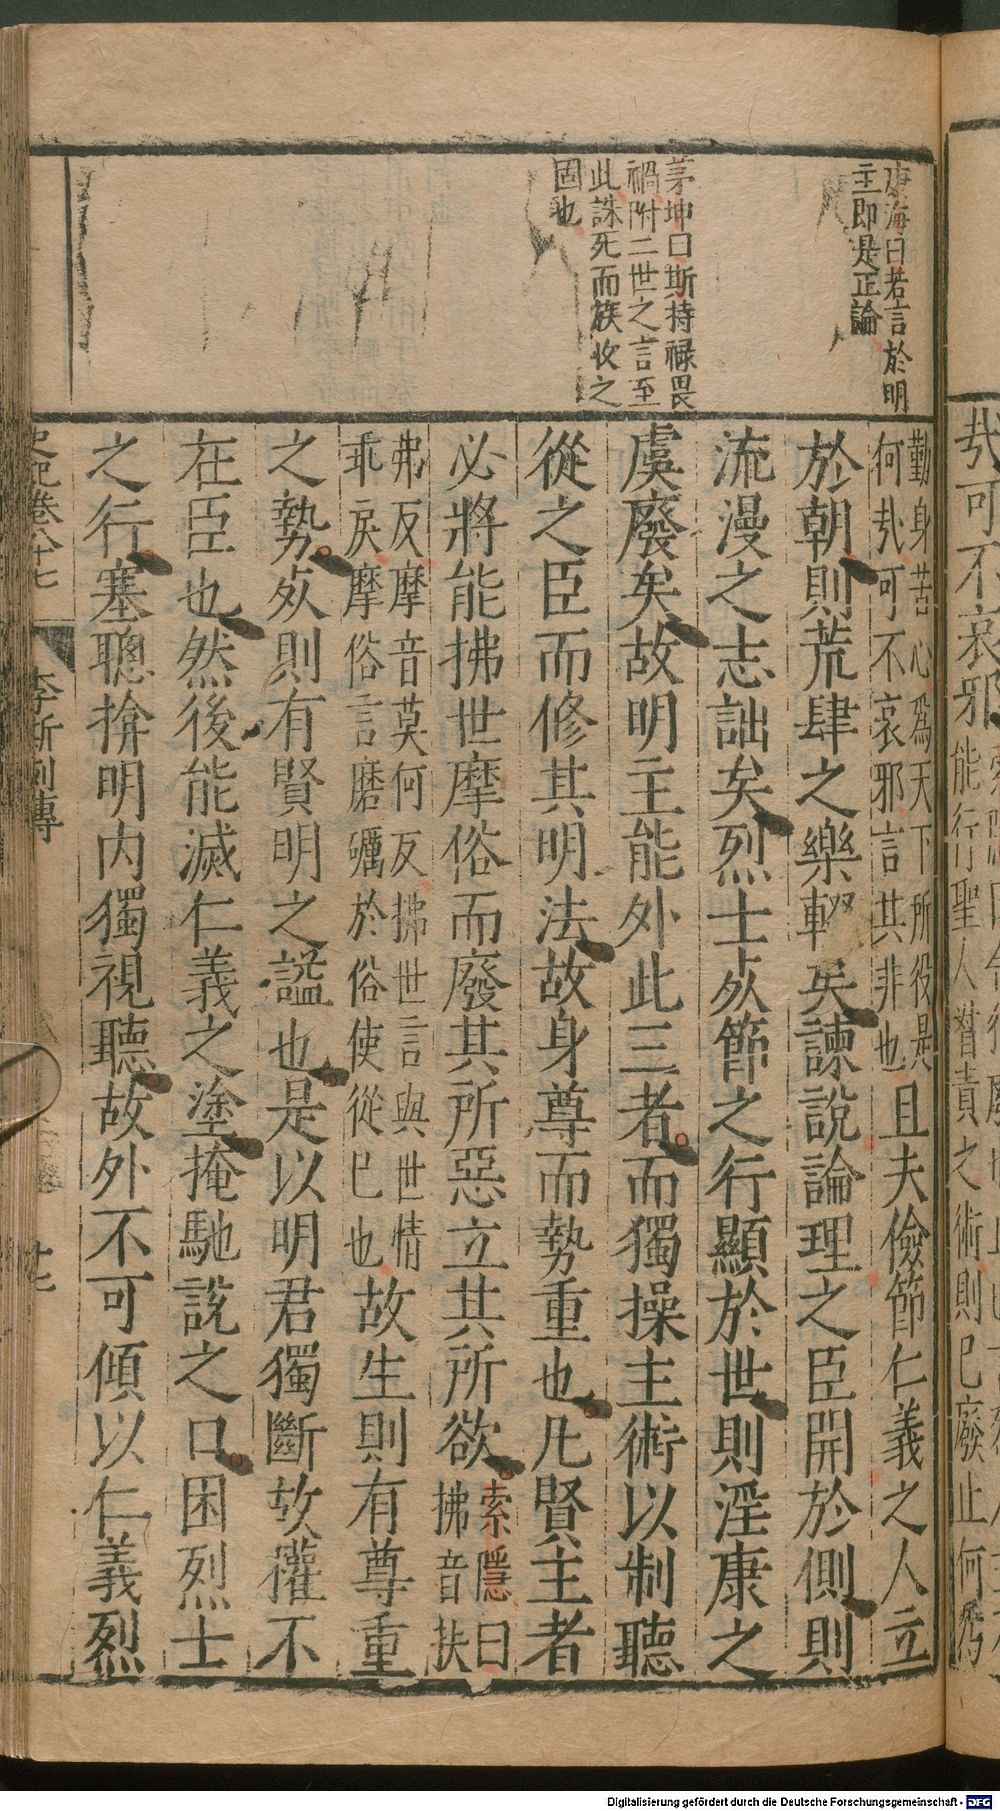 唐海曰若言於明
主即是正論
茅坤曰斯持祿畏
禍附二世之言至
此誅死而族收之
固也
哉可不哀邪
能行聖人督責之術則巳廢止何爲
勤身苦心爲天下所役是
何㢤可不哀邪言其非也
且夫儉節仁義之人立
於朝則荒肆之樂輟矣諫說論理之臣開於側則
流漫之志詘矣烈士死節之行顯於世則淫康之
虞廢矣故明主能外此三者而獨操主術以制聽
從之臣而修其明法故身尊而勢重也凡賢主者
必將能拂世摩俗而廢其所惡立其所欲
索隱曰
拂音扶
弗反摩音莫何反拂世言與世情
乖戾摩俗言磨礪於俗使從巳也
故生則有尊重
之勢死則有賢明之諡也是以明君獨斷故權不
在臣也然後能滅仁義之塗掩馳說之口困烈士
之行塞聰揜明内獨視聽故外不可傾以仁義烈
史記卷八十七
李斯列傳
廿七
Digitalisierung gefördert durch die Deutsche Forschungsgemeinschaft - DFG